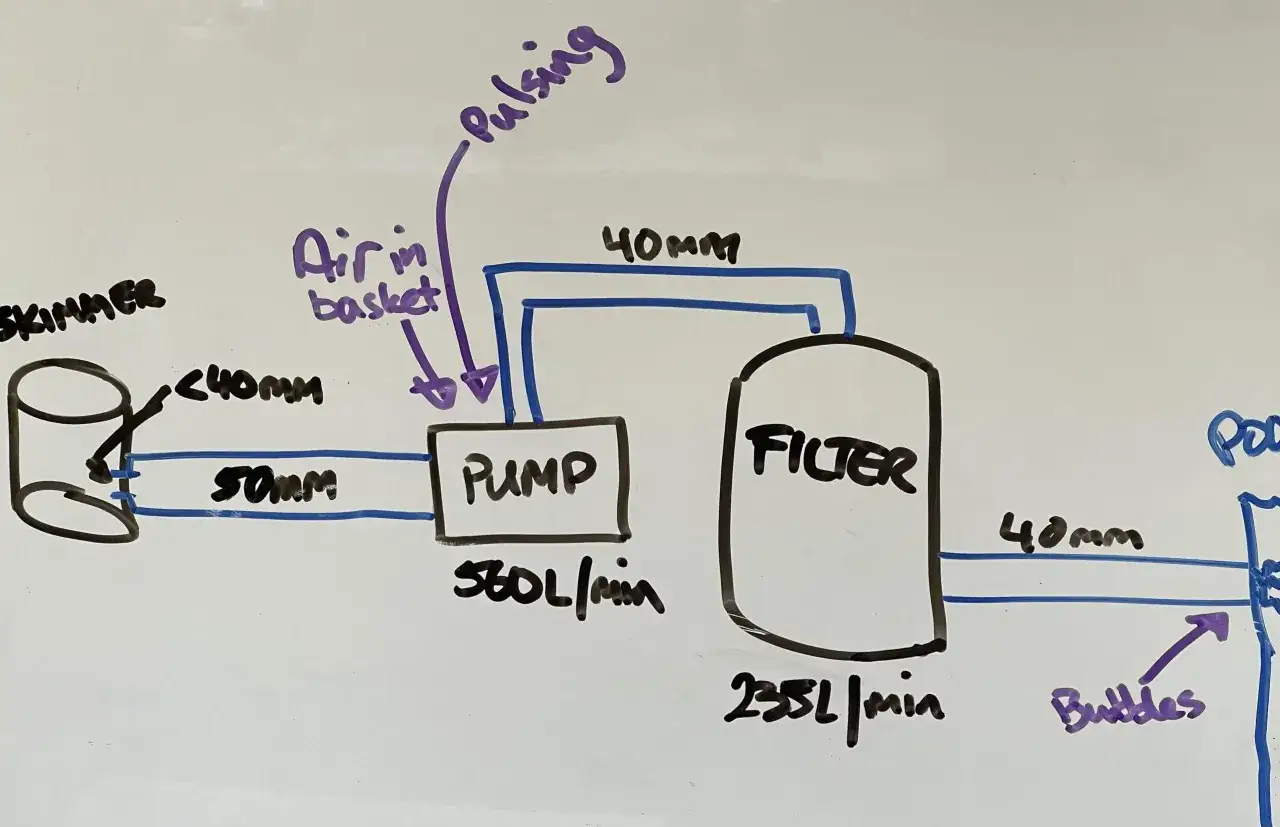 Pulsing
Air in
basket
40mm
SKIMMER
<40mm
50mm
PUMP
560L/min
FILTER
235L/min
40mm
Bubbles